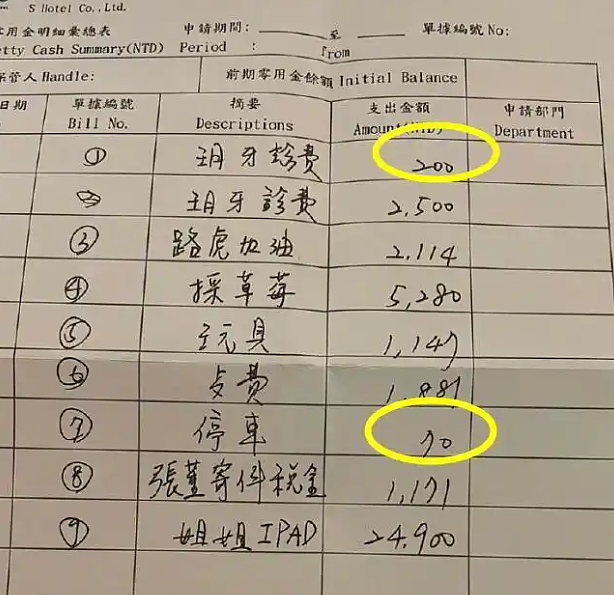 S Hotel Co.,Ltd.
用金明細彙總表 申請期間: 至 單據編號 No:
etty Cash Summary(NTD) Period : from
保管人 Handle: 前期零用金餘額 Initial Balance
日期 單據編號 摘要 支出金額 申請部門
Bill No. Descriptions Amount(NTD) Department
① 玥牙診費 200
② 玥牙診費 2,500
③ 路虎加油 2,114
④ 採草莓 5,280
⑤ 玩具 1,147
⑥ 1,881
⑦ 停車 70
⑧ 張董寄件稅金 1,171
⑨ 姐姐IPAD 24,900